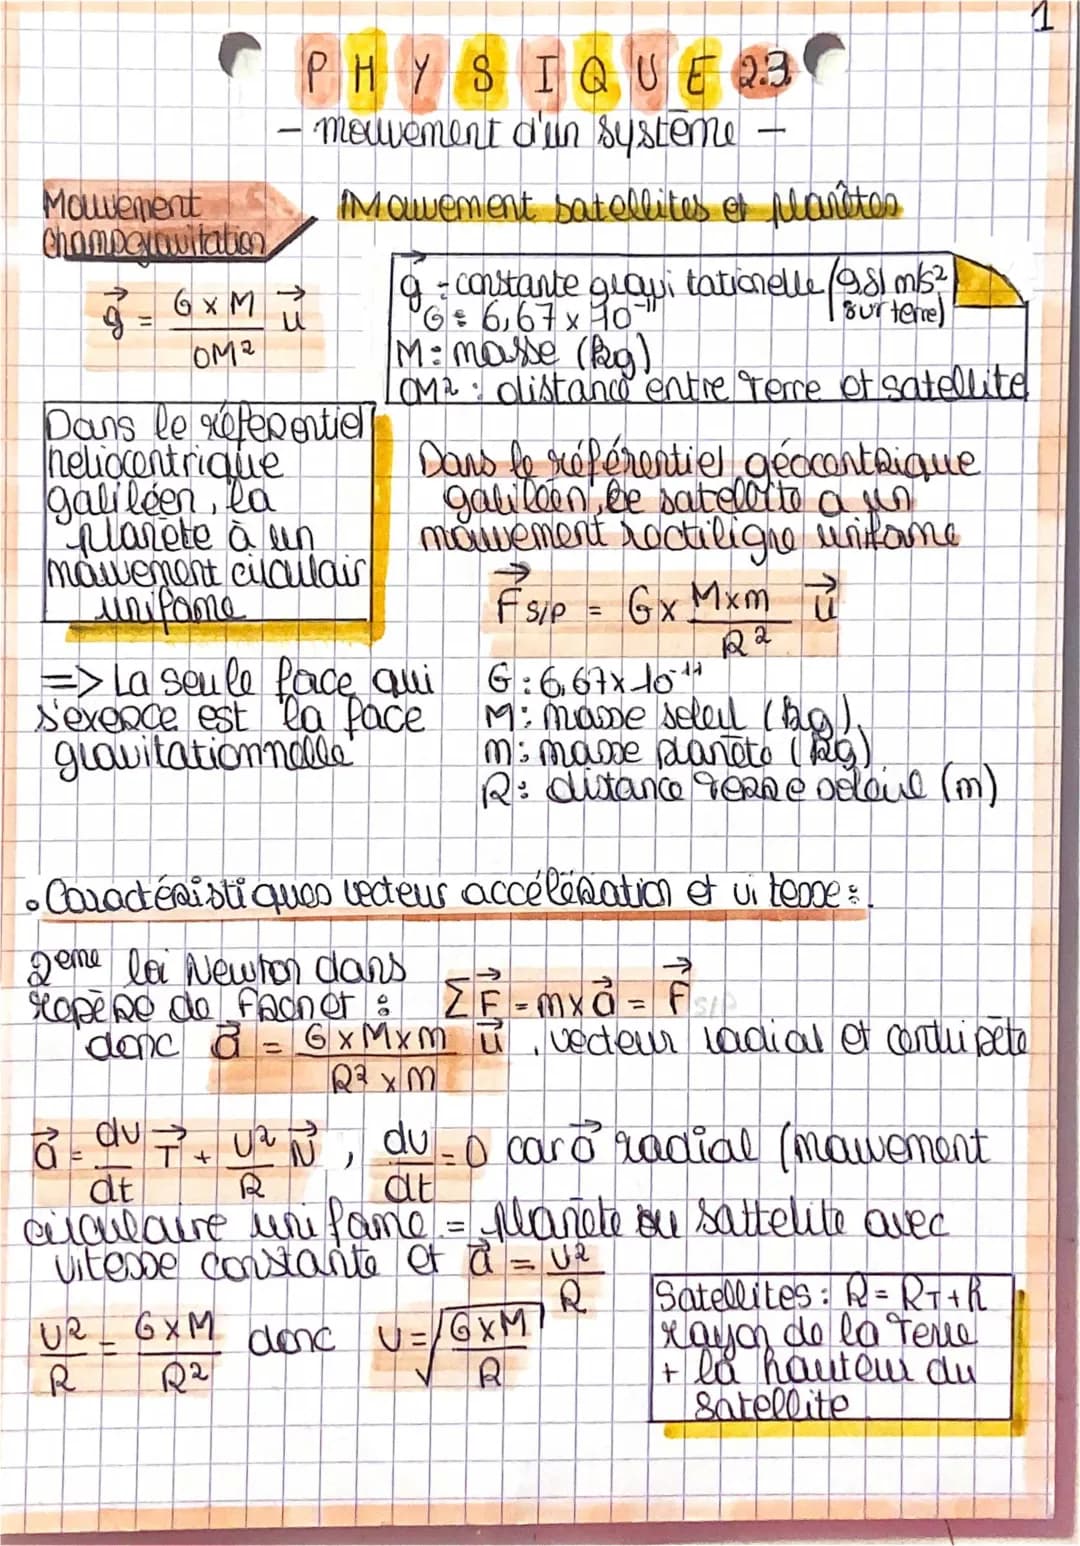 1
PHYSIQUE 2.3
- mouvement d'un système -
Mouvement
champ gravitation
Mouvement satellites et planètes
g⃗ = G × M / OM² u⃗
g⃗ : constante gravitationelle (9,81 m/s²
sur terre)
G : 6,67 × 10⁻¹¹
M : masse (kg)
OM² : distance entre Terre et satellite
Dans le réferentiel
heliocentrique
galiléen, la
planète à un
mouvement circulair
uniforme
Dans le référentiel géocentrique
galiléen, le satellite a un
mouvement rectiligne uniforme
F⃗ S/P = G × M×m / R² u⃗
=> La seule force qui
s'exerce est la force
gravitationnelle
G : 6,67 × 10⁻¹¹
M : masse soleil (kg).
m : masse planète (kg)
R : distance Terre soleil (m)
• Caractéristiques vecteurs accélération et vitesse :
2eme loi Newton dans
repère de Frenet : Σ F⃗ = m × a⃗ = F⃗ S/P
donc a⃗ = G × M × m / R² × m u⃗, vecteur radial et centripète
a⃗ = dv/dt T⃗ + v²/R N⃗, dv/dt = 0 car a⃗ radial (mouvement
circulaire uniforme = planète ou sattelite avec
vitesse constante et a⃗ = v²/R
v²/R = G × M / R² donc v = √(G × M / R)
Satellites : R = RT + h
rayon de la Terre
+ la hauteur du
satellite